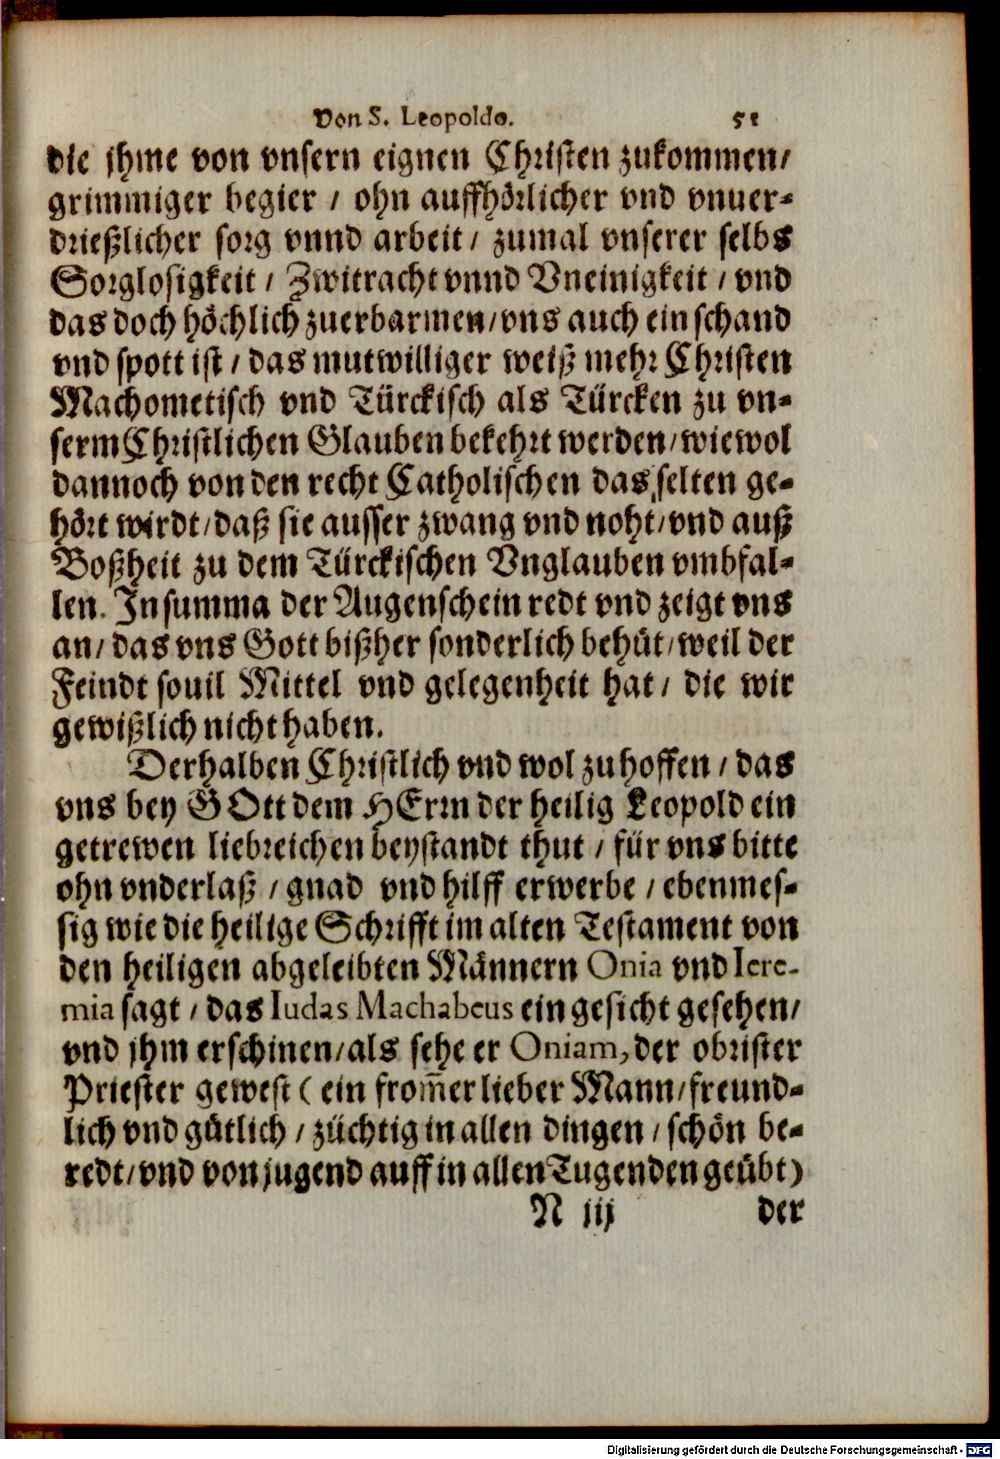 Von S. Leopoldo. 51
die jhme von vnsern eignen Christen zukommen/
grimmiger begier / ohn auffhörlicher vnd vnuer-
drießlicher sorg vnnd arbeit / zumal vnserer selbs
Sorglosigkeit / Zwitracht vnnd Vneinigkeit / vnd
das doch höchlich zuerbarmen/vns auch ein schand
vnd spott ist / das mutwilliger weiß mehr Christen
Machometisch vnd Türckisch als Türcken zu vn-
serm Christlichen Glauben bekehrt werden/wiewol
dannoch von den recht Catholischen das selten ge-
hört wirdt/daß sie ausser zwang vnd noht/vnd auß
Boßheit zu dem Türckischen Vnglauben vmbfal-
len. In summa der Augenschein redt vnd zeigt vns
an/ das vns Gott bißher sonderlich behüt/weil der
Feindt souil Mittel vnd gelegenheit hat / die wir
gewißlich nicht haben.
Derhalben Christlich vnd wol zuhoffen / das
vns bey GOtt dem HErrn der heilig Leopold ein
getrewen liebreichen beystandt thut / für vns bitte
ohn vnderlaß / gnad vnd hilff erwerbe / ebenmes-
sig wie die heilige Schrifft im alten Testament von
den heiligen abgeleibten Männern Onia vnd Iere-
mia sagt / das Iudas Machabeus ein gesicht gesehen/
vnd jhm erschinen/als sehe er Oniam, der obrister
Priester gewest ( ein from̃er lieber Mann/freund-
lich vnd gütlich / züchtig in allen dingen / schön be-
redt/vnd von jugend auff in allen Tugenden geübt)
N iij der
Digitalisierung gefördert durch die Deutsche Forschungsgemeinschaft - DFG